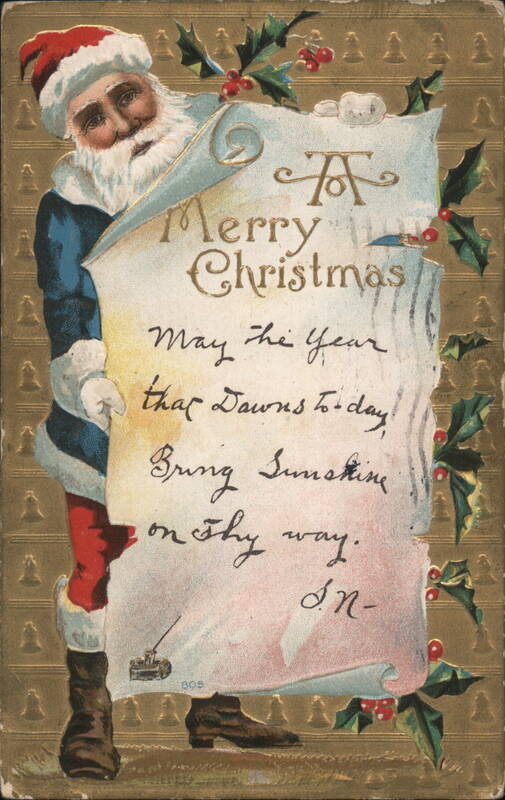 A
Merry
Christmas
May the Year
that Dawns to-day,
Bring Sunshine
on Thy way.
S. N-
805